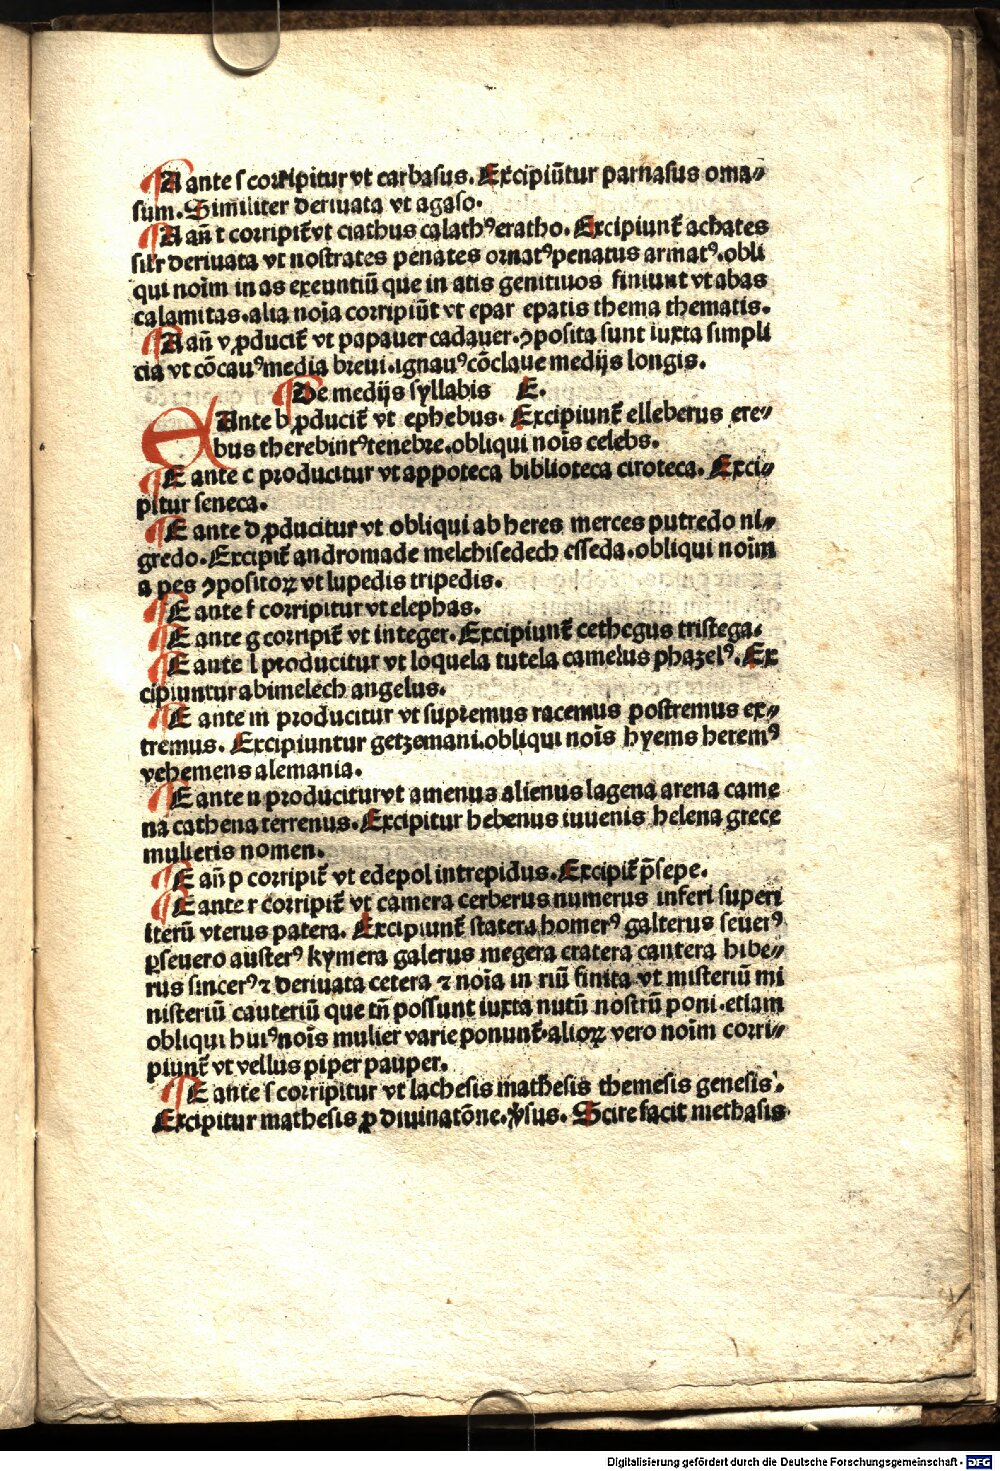 A ante ſ corripitur vt carbasus. Excipiūtur parnasus oma⸗
sum. Similiter deriuata vt agaso.
A an̄ t corripit᷑ vt ciathus calathꝰ eratho. Excipiunt᷑ achates
silr deriuata vt nostrates penates ornatꝰ penatus armatꝰ. obli
qui noīm in as exeuntiū que in atis genitiuos finiunt vt abas
calamitas. alia noīa corripiūt vt epar epatis thema thematis.
A an̄ v ꝓducit᷑ vt papauer cadauer. ꝯposita sunt iuxta simpli
cia vt cōcauꝰ media breui. ignauꝰ cōclaue medijs longis.
De medijs syllabis E.
E Ante b ꝓducit᷑ vt ephebus. Excipiunt᷑ elleberus ere⸗
bus therebintꝰ tenebre. obliqui noīs celebs.
E ante c producitur vt appoteca biblioteca ciroteca. Exci⸗
pitur seneca.
E ante d ꝓducitur vt obliqui ab heres merces putredo ni⸗
gredo. Excipit᷑ andromade melchisedech esseda. obliqui noīm
a pes ꝯpositoꝝ vt lupedis tripedis.
E ante f corripitur vt elephas.
E ante g corripit᷑ vt integer. Excipiunt᷑ cethegus tristega.
E ante l producitur vt loquela tutela camelus phaselꝰ. Ex
cipiuntur abimelech angelus.
E ante m producitur vt supremus racemus postremus ex⸗
tremus. Excipiuntur getzemani. obliqui noīs hyems heremꝰ
vehemens alemania.
E ante n producitur vt amenus alienus lagena arena came
na cathena terrenus. Excipitur hebenus iuuenis helena grece
mulieris nomen.
E an̄ p corripit᷑ vt edepol intrepidus. Excipit᷑ p̄sepe.
E ante r corripit᷑ vt camera cerberus numerus inferi superi
iterū vterus patera. Excipiunt᷑ statera homerꝰ galterus seuerꝰ
ꝑseuero austerꝰ kymera galerus megera cratera cantera hibe⸗
rus sincerꝰ ⁊ deriuata cetera ⁊ noīa in riū finita vt misteriū mi
nisteriū cauteriū que tn̄ possunt iuxta nutū nostrū poni. etiam
obliqui huiꝰ noīs mulier varie ponunt᷑. alioꝝ vero noīm corri⸗
piunt᷑ vt vellus piper pauper.
E ante ſ corripitur vt lachesis mathesis themesis genesis.
Excipitur mathesis ꝓ diuinatōne. v̓sus. Scire facit methasis
Digitalisierung gefördert durch die Deutsche Forschungsgemeinschaft - DFG